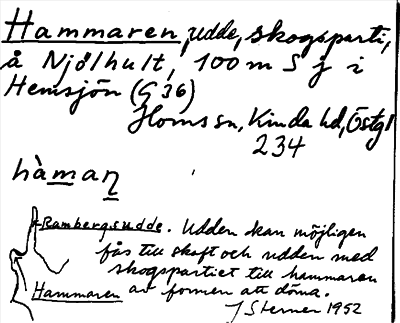 Hammaren, udde, skogsparti,
å Njölhult, 100 m S j i
Hemsjön (G 36)
Horns sn, Kinda hd, Östgl
234
hàmaṉ
Rambergsudde. Udden kan möjligen
fås till skaft och udden med
skogspartiet till hammaren
Hammaren av formen att döma.
J Sterner 1952